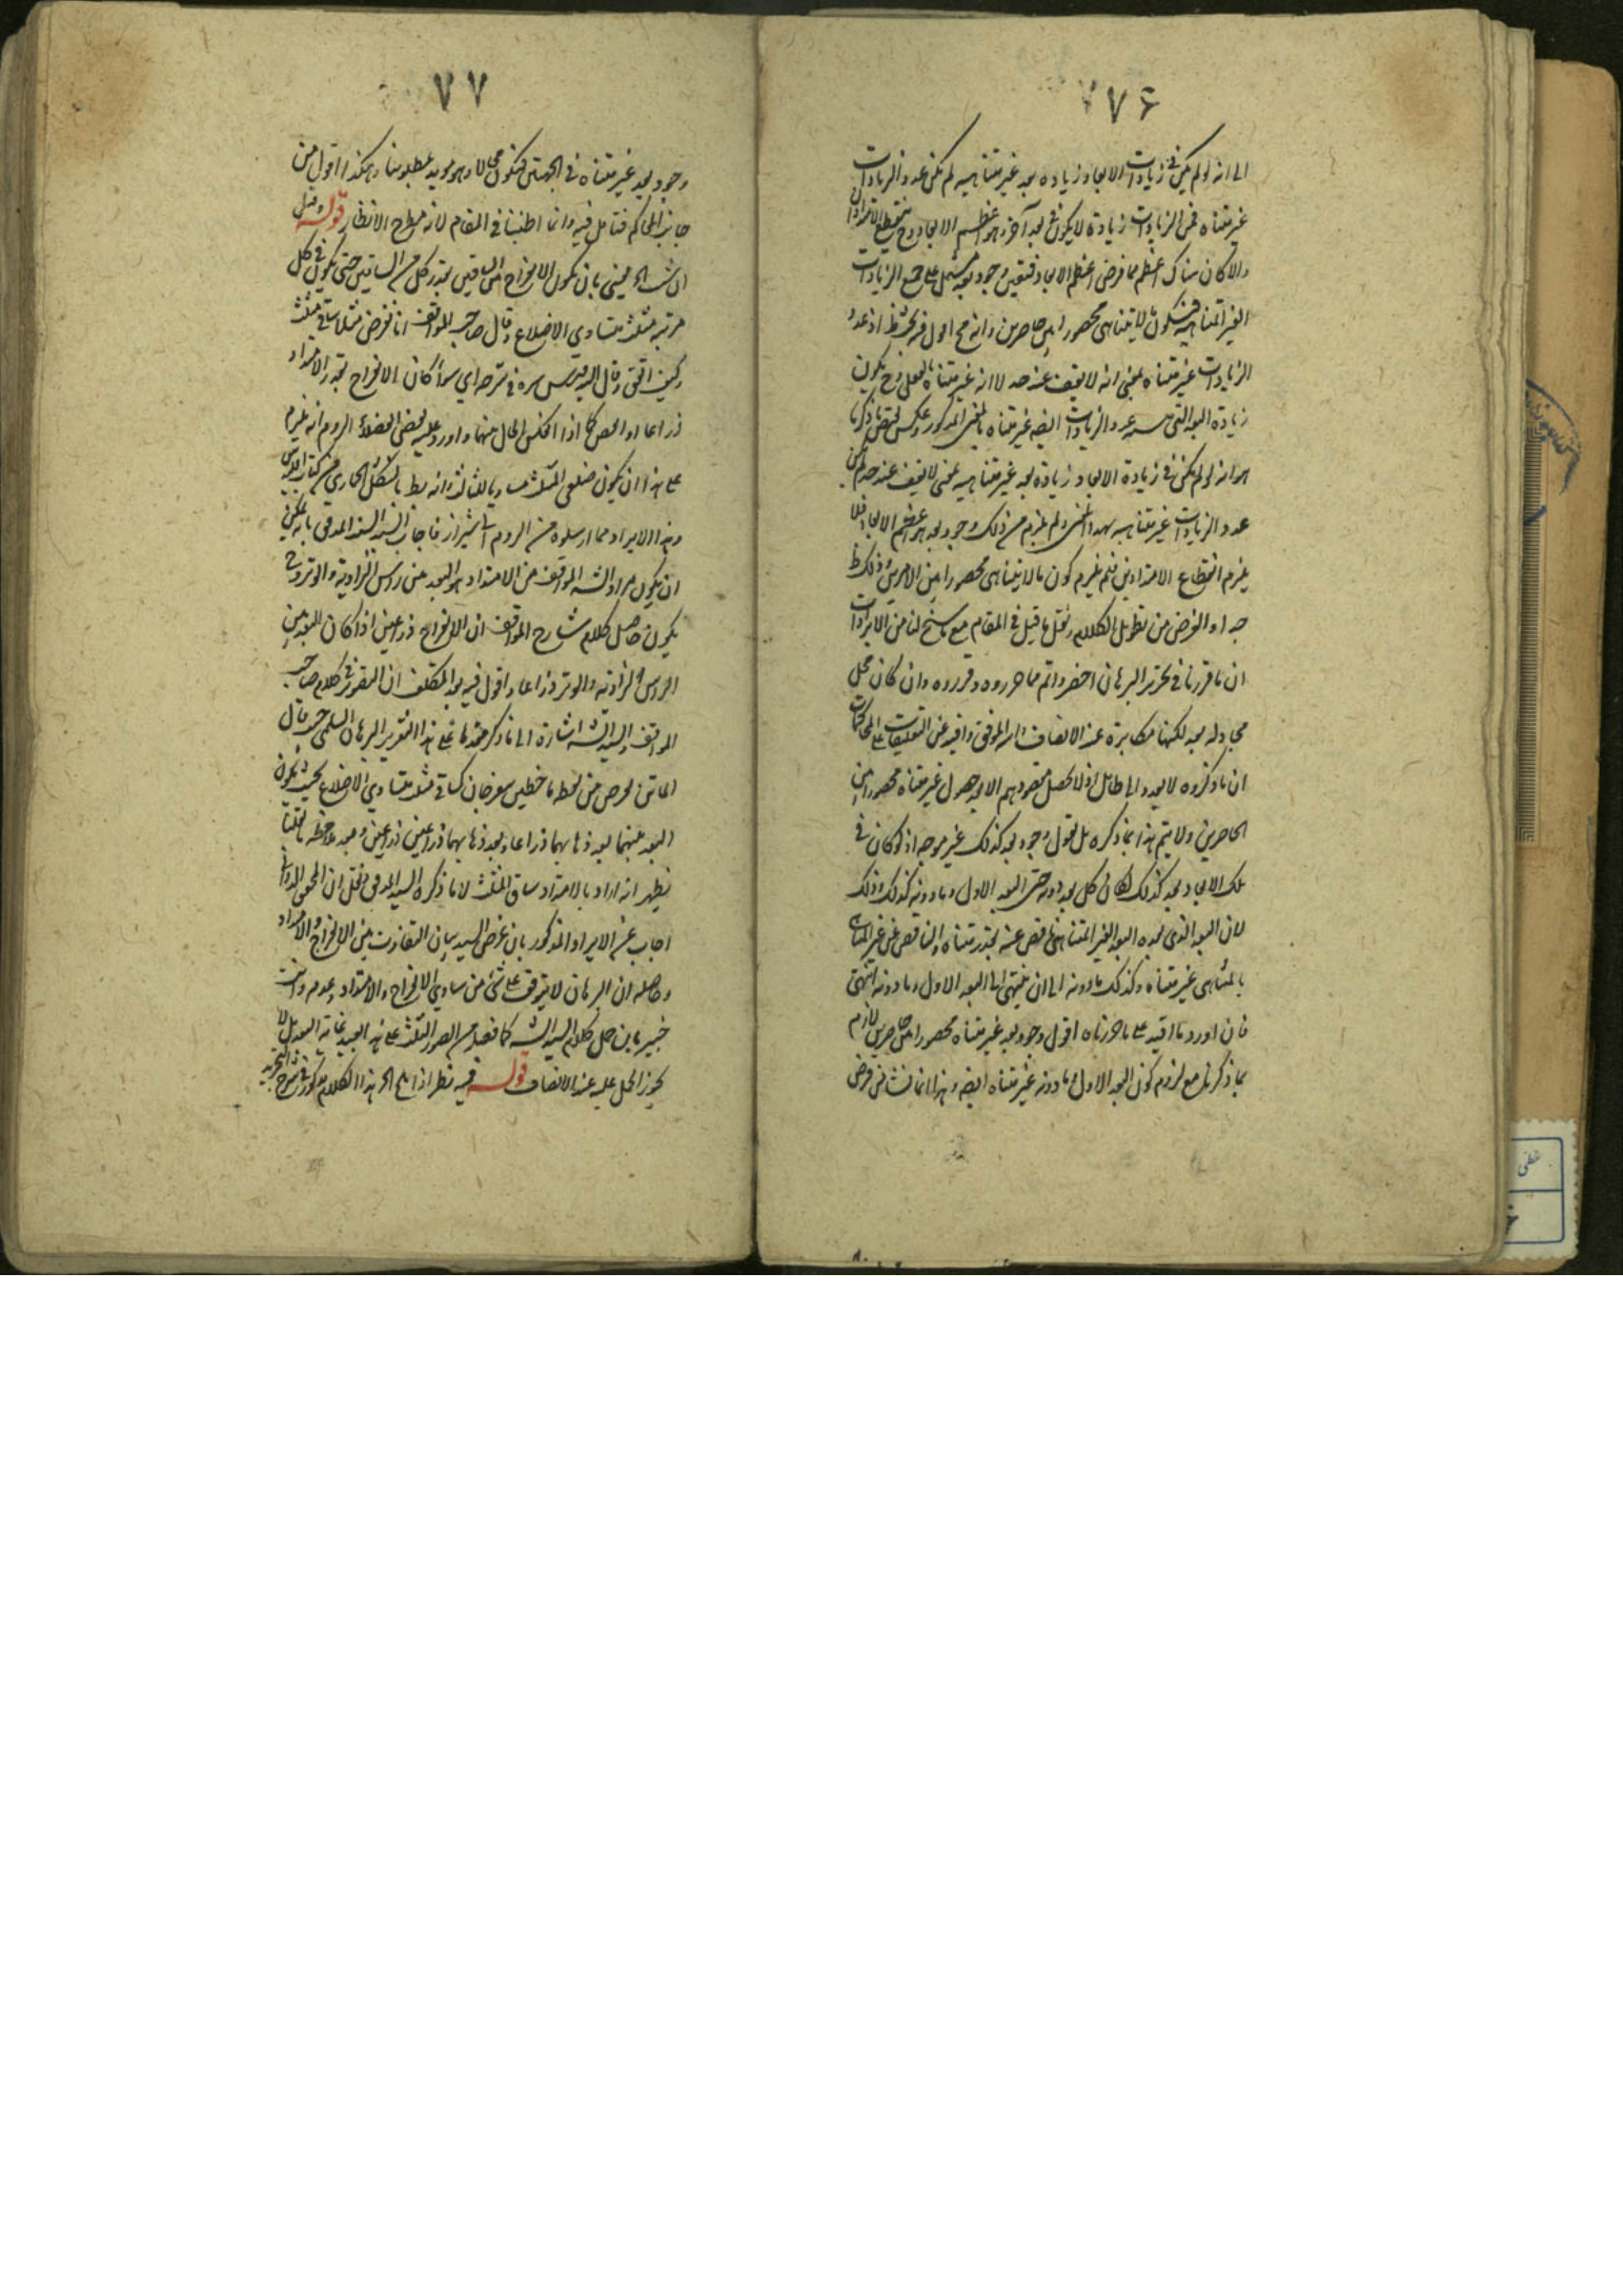 ٧٦
الى انه لو لم يكن في زيادات الابعاد زيادة بعد غير متناهية لم يكن عدد الزيادات
غير متناه فمن الزيادات زيادة لا يكون في بعد آخر وهو اعظم الابعاد وح ينقطع الامتدادان
والا كان هناك اعظم مما فرض اعظم الابعاد فتعين وجود بعد مشتمل على جميع الزيادات
الغير المتناهية فيكون ما لا يتناهى محصورا بين حاصرين وانه مح اقول فيه بحث ظ اذ عدد
الزيادات غير متناه بمعنى انه لا يقف عند حد لا انه غير متناه بالفعل وح يكون
زيادة البعد التي عدد الزيادات ايضه غير متناه بالمعنى المذكور وعكس نقيض ما ذكرنا
هو انه لو لم يكن في زيادة الابعاد زيادة بعد غير متناهية بمعنى لا يقف عند حد لم يكن
عدد الزيادات غير متناهية بهذا المعنى ولم يلزم من ذلك وجود بعد هو اعظم الابعاد فلا
يلزم انقطاع الامتدادين فلم يلزم كون ما لا يتناهى محصورا بين الامرين وذلك ظ
جدا والغرض من تطويل الكلام ونقل ما قيل في المقام مع ما سنح لنا من الايرادات
ان ما قررنا في تحرير البرهان اخصر واتم مما حرروه وقرروه وان كان محل
مجادلة بعد لكنها مكابرة عند الانصاف والله الموفق وافيد في التعليقات على المحاكمات
ان ما ذكروه لا يجدي الى طائل اذ لا يحصل مقصودهم الا بعد حصول غير متناه محصورا بين
الحاصرين ولا يتم هذا بما ذكره بل نقول وجود بعد كذلك غير موجه اذ لو كان في
تلك الابعاد بعد كذلك لكان كل بعد دونه حتى البعد الاول وما دونه كذلك وذلك
لان البعد الذي بعده البعد الغير المتناهي ناقص عنه بقدر متناه والناقص عن غير المتناهي
بالمتناهي غير متناه وكذلك ما دونه الى ان ينتهي الى البعد الاول وما دونه انتهى
فان اورد ما افيد على ما حررناه اقول وجود بعد غير متناه محصورا بين حاصرين لازم
بما ذكرنا مع لزوم كون البعد الاول وما دونه غير متناه ايضه وهذا انما نشأ من فرض
٧٧
وجود بعد غير متناه في الجهتين فيكون محالا وهو مؤيد لمطلوبنا وهكذا اقول من
جانب المحاكم فتامل فيه وانما اطنبنا في المقام لانه مطرح الانظار قوله وقيل
ان شئت الخ يعنى بان يكون الانفراج بين الساقين بقدر كل من الساقين حتى يكون في كل
مرتبة مثلث متساوي الاضلاع وقال صاحب المواقف انا نفرض مثلا ساقي مثلث
وكيف اتفق وقال السيد قدس سره في شرحه اي سواء كان الانفراج بقدر الامتداد
ذراعا او انقص كما اذا انعكس الحال بينهما واورد عليه بعض الفضلاء الروم انه يلزم
على هذا ان يكون ضلعي المثلث مساويا للثالث وانه بط بالشكل الحماري من كتاب اقليدس
وهذا الايراد مما ارسلوه من الروم الى شيراز فاجاب السيد السند المدقق بانه يمكن
ان يكون مراد الشه المواقف من الامتداد هو البعد من راس الزاوية والوتر وح
يكون حاصل كلام شارح المواقف ان الانفراج ذراعين اذا كان البعد بين
الراس الزاوية والوتر ذراعا واقول فيه بعد التكلف ان التصوير في كلام صاحب
المواقف والسيد الشه اشارة الى ما ذكر متقدما على هذا التقرير البرهان السلمي حيث قال
الماتن نفرض من نقطة ما خطين ينفرجان كساقي مثلث متساوي الاضلاع بحيث يكون
البعد بينهما بعد ذهابهما ذراعا ذراعا وبعد ذهابهما ذراعين ذراعين وبعد ملاحظة ما نقلنا
يظهر انه اراد بالامتداد ساق المثلث لا ما ذكره السيد المدقق ونقل ان المحقق الدواني
اجاب عن الايراد المذكور بان غرض السيد بيان التفاوت بين الانفراج والامتداد
وحاصله ان البرهان لا يتوقف على شئ من تساوي الانفراج والامتداد وعدمه وانت
خبير بان حمل كلام السيد الشه كما فصله من الصور الثلث على هذا بعيد غاية البعد بل لا
يجوز الحمل عليه عند الانصاف قوله فيه نظر اذ الخ هذا الكلام مذكور في شرح التجريد
خطى